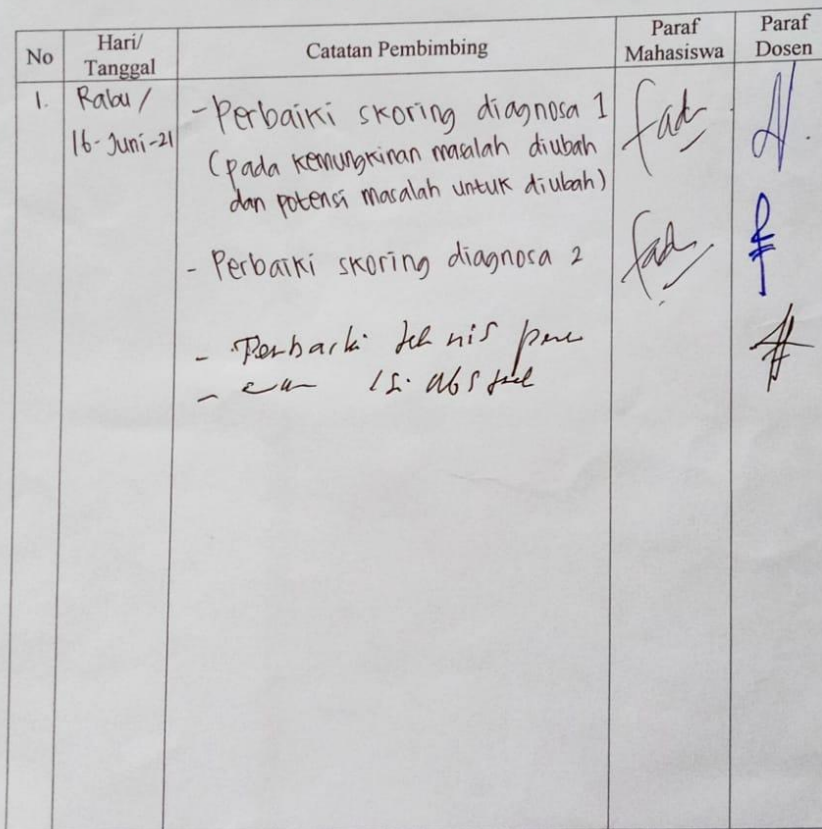 No
Hari/
Tanggal
Catatan Pembimbing
Paraf
Mahasiswa
Paraf
Dosen
1.
Rabu /
16-Juni-21
- Perbaiki skoring diagnosa 1
(pada kemungkinan masalah diubah
dan potensi masalah untuk diubah)
- Perbaiki skoring diagnosa 2
- Perbaiki
- isi